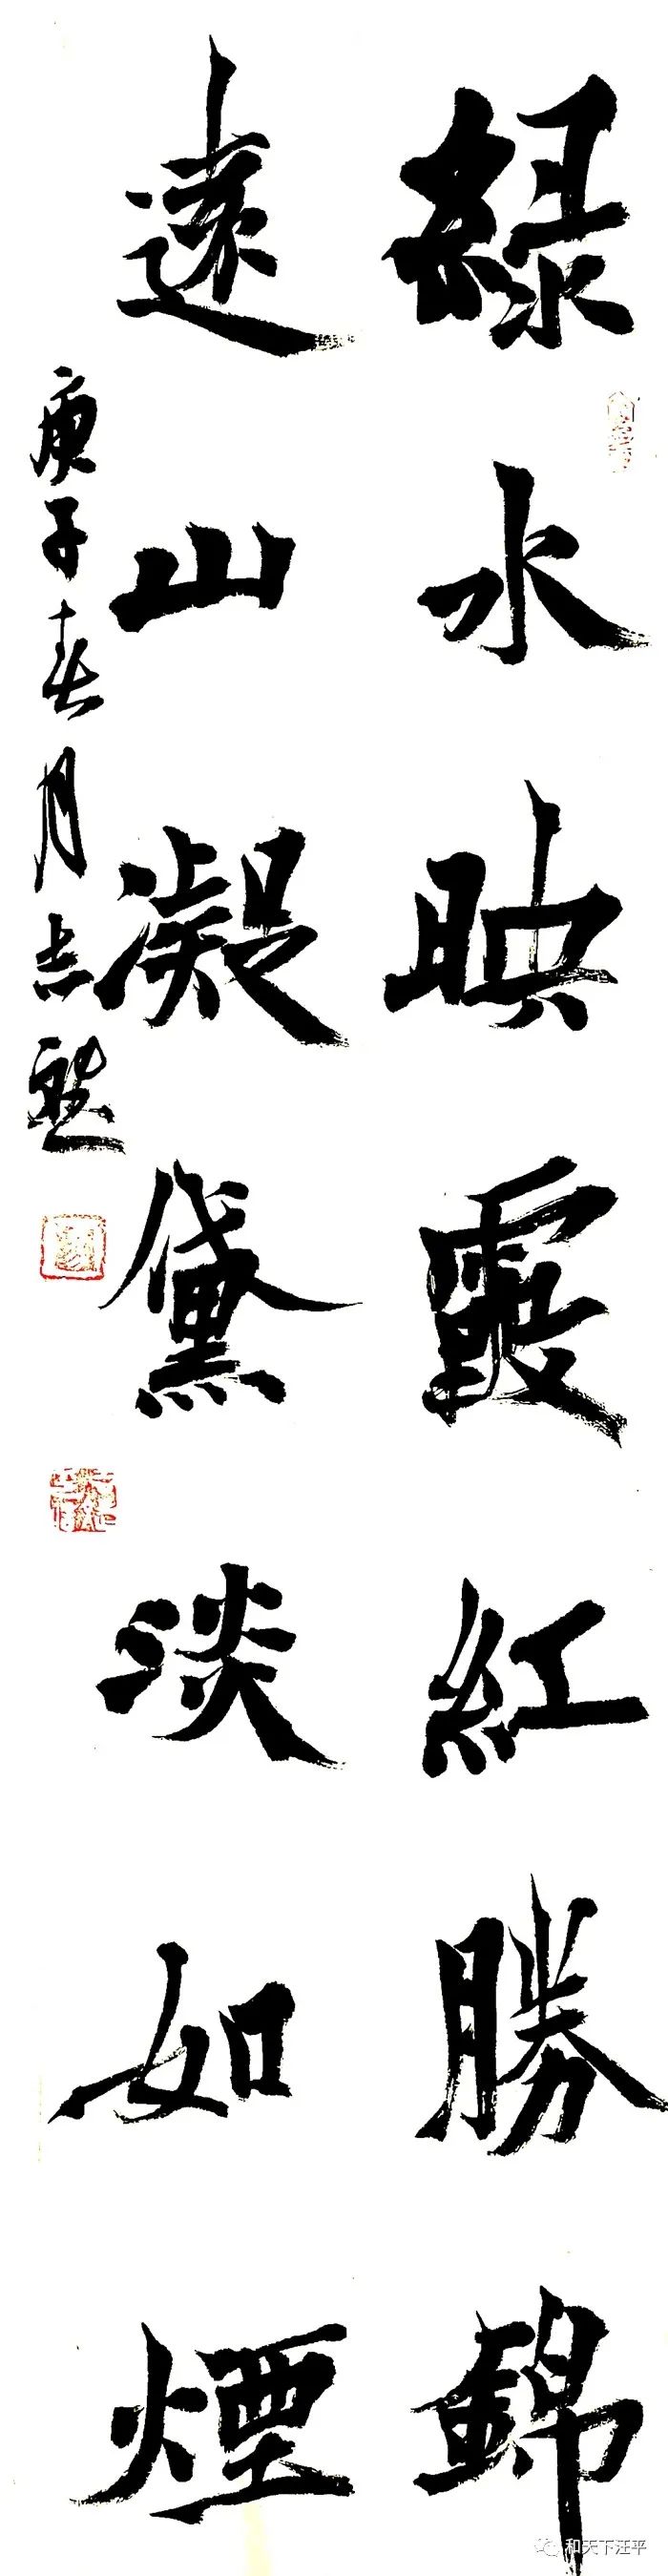 緑水映霞紅勝錦
遠山凝黛淡如煙
庚子春月志
和天下汪平